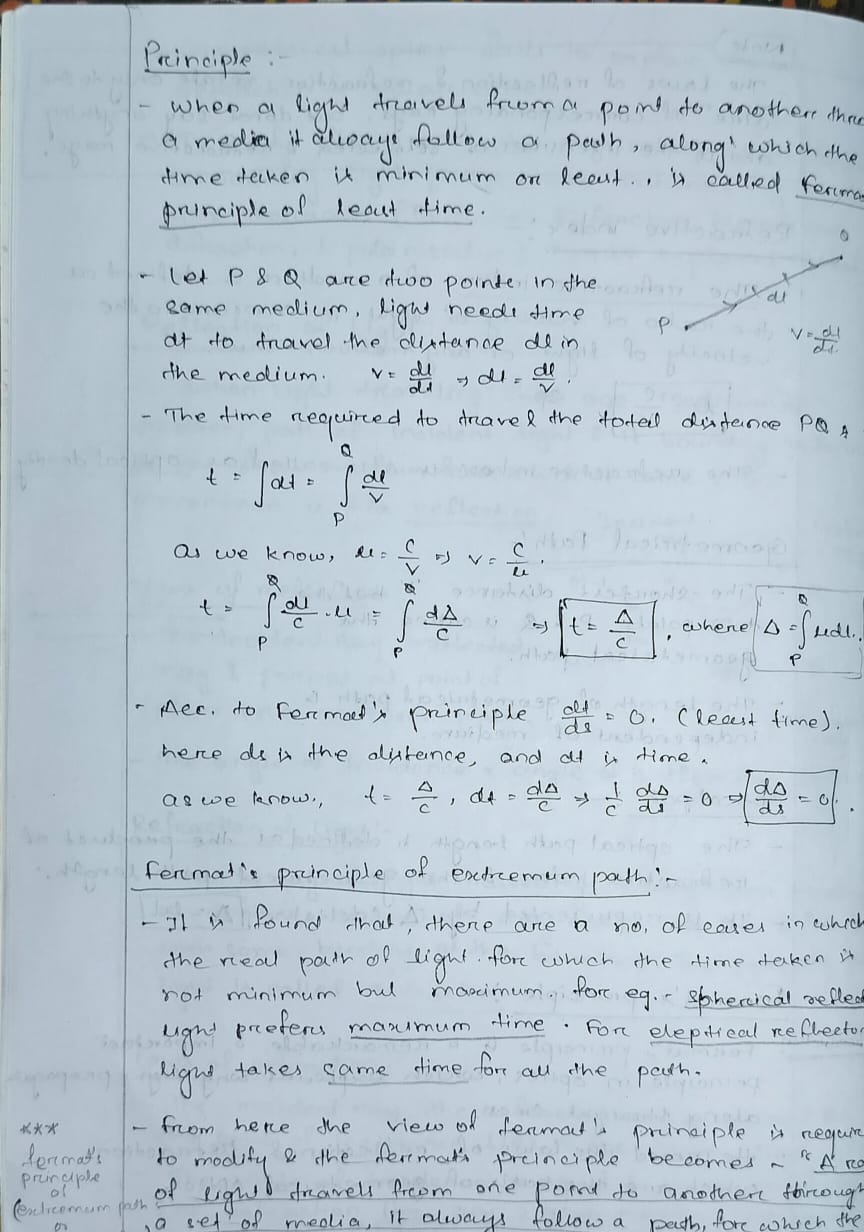 Principle :-
- When a light travels from a point to another thro
a media it always follow a path, along which the
time taken is minimum or least., is called Ferma
principle of least time.
- Let P & Q are two points in the
same medium, light needs time
dt to travel the distance dl in
the medium. v = dl/dt ⇒ dt = dl/v.
Q
dl
P
v = dl/dt
- The time required to travel the total distance PQ,
t = ∫dt = ∫_P^Q dl/v
as we know, μ = c/v ⇒ v = c/μ.
t = ∫_P^Q dl/c . μ = ∫_P^Q dΔ/c ⇒ t = Δ/c, where Δ = ∫_P^Q μdl.
- Acc. to Fermat's principle dt/ds = 0. (least time).
here ds is the distance, and dt is time.
as we know, t = Δ/c, dt = dΔ/c ⇒ 1/c dΔ/ds = 0 ⇒ dΔ/ds = 0.
Fermat's principle of extremum path:-
- It is found that, there are a no. of cases in which
the real path of light for which the time taken is
not minimum but maximum. for eg.- spherical reflec
light prefers maximum time. For eleptical reflector
light takes same time for all the path.
- from here the view of fermat's principle is require
to modify & the fermat's principle becomes ~ "A ra
of light travels from one point to another through
a set of media, it always follow a path, for which the
***
fermat's
principle
of
(extremum path
or